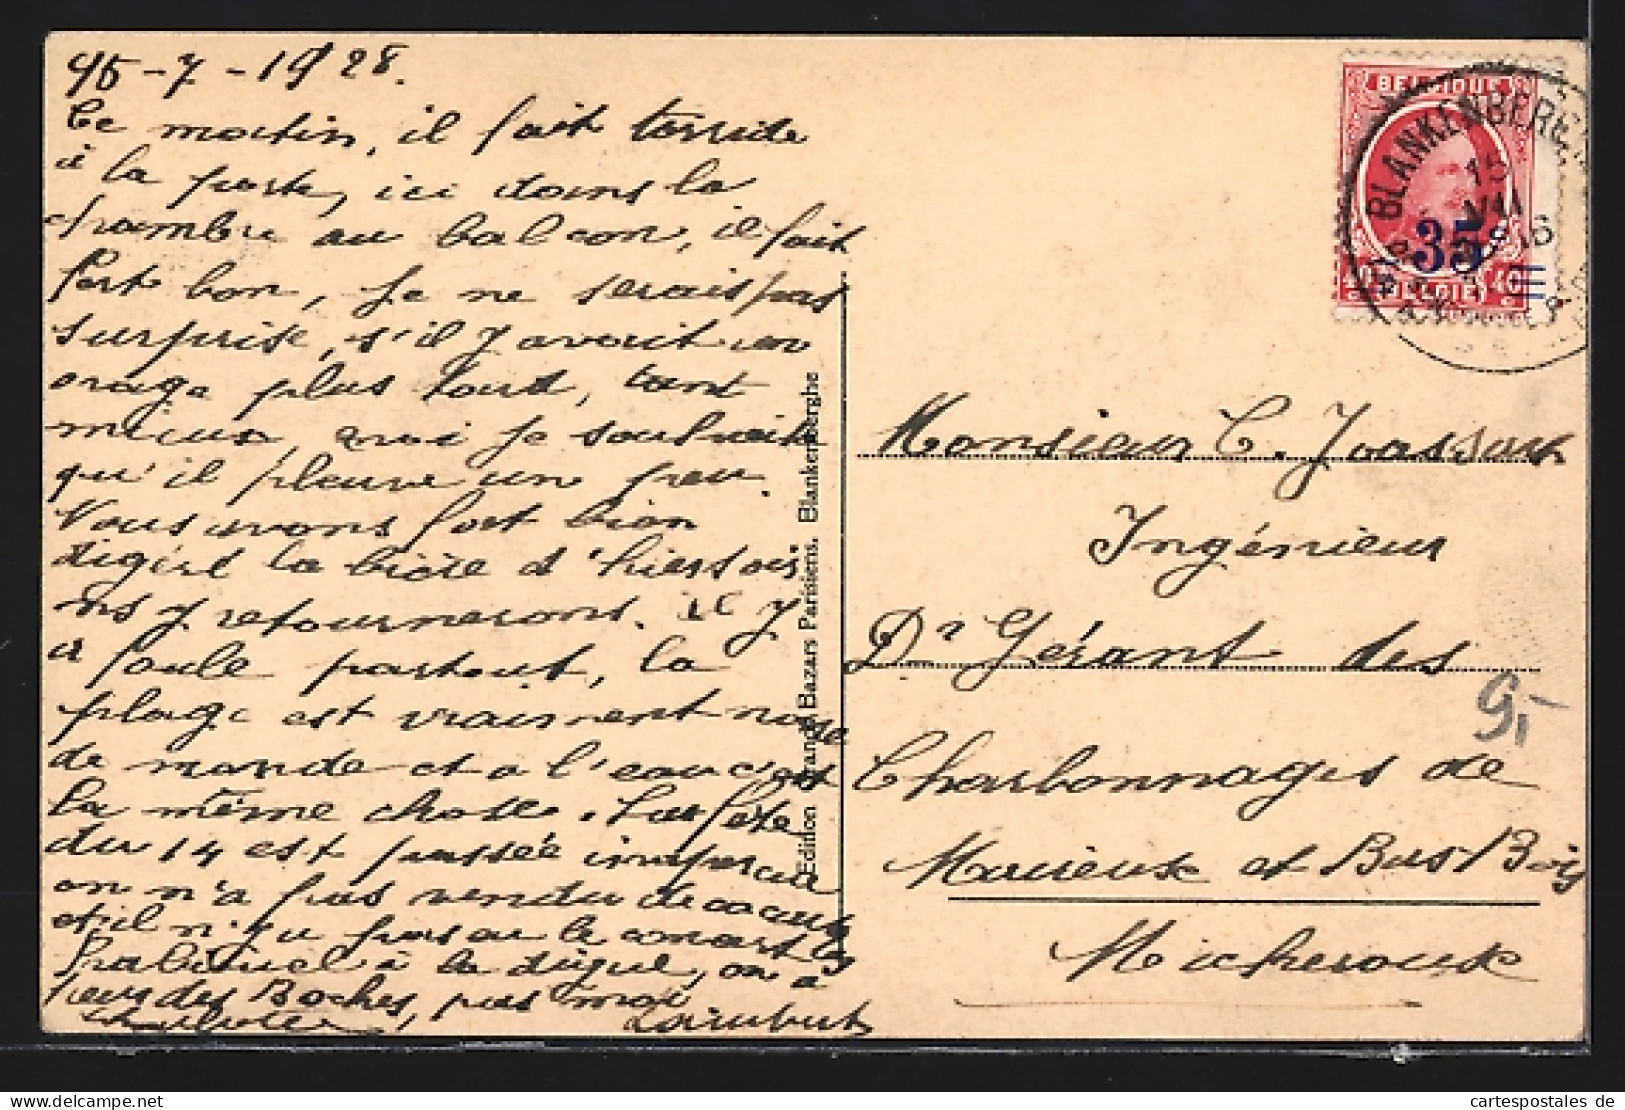 15-7-1928.
Ce matin, il fait torride
à la porte, ici dans la
chambre au balcon, il fait
fort bon, je ne serais pas
surprise, s'il y avait un
orage plus tard, tant
mieux, moi je souhaite
qu'il pleuve un peu.
Nous avons fort bien
digéré la bière d'hier soir
ns y retournerons. Il y
a foule partout, la
plage est vraiment noire
de monde et à l'eau c'est
la même chose. La fête
du 14 est passée
on n'a pas vendu de
et il n'y eu pas eu le concert
habituel à la digue, on a
peur des Boches, pas moi
Lambert
Edition Grands Bazars Parisiens, Blankenberghe
BELGIQUE
35
40 40
BELGIË
BLANKENBERGE
15
VII
16
Monsieur C.
Ingénieur
Dr Gérant des
Charbonnages de
et Bas-Bois
Micheroux
9,-
cartespostales de